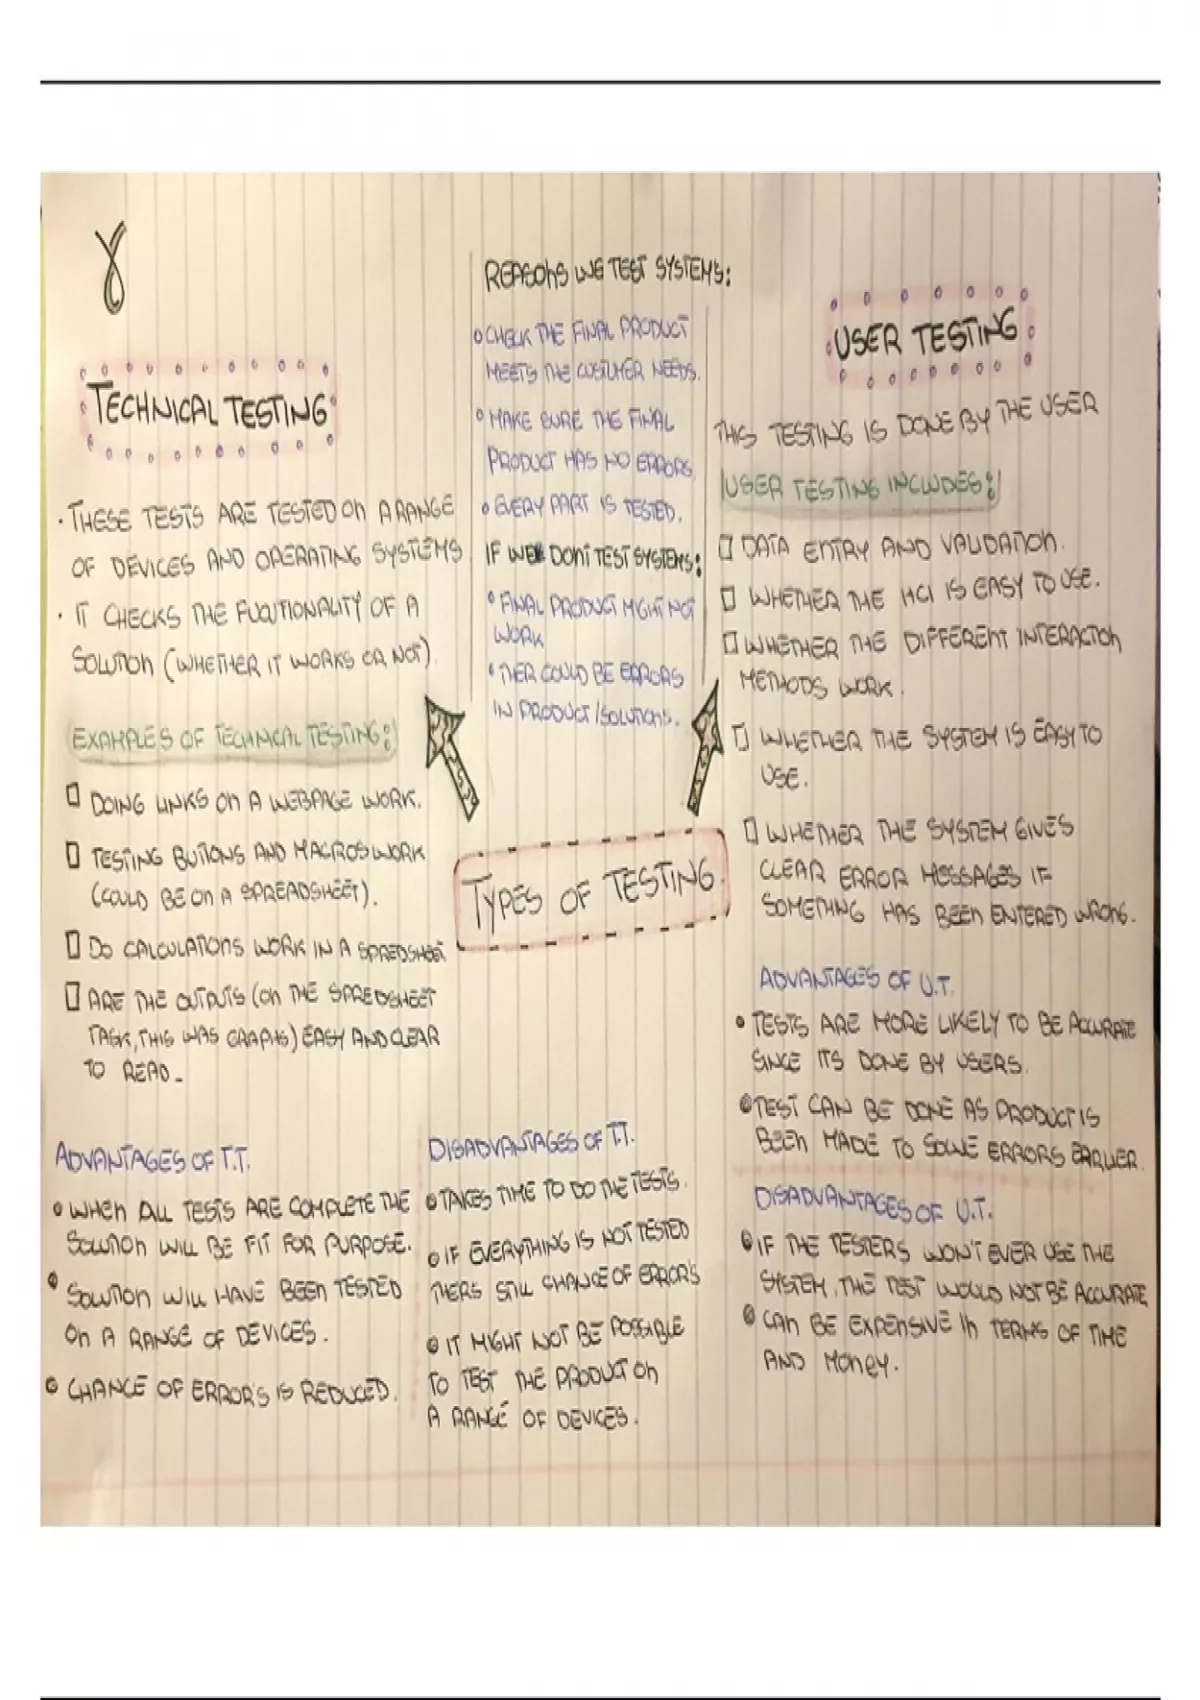 8
REASONS WE TEST SYSTEMS:
• CHECK THE FINAL PRODUCT
MEETS THE CUSTUMER NEEDS.
• MAKE SURE THE FINAL
PRODUCT HAS NO ERRORS.
• EVERY PART IS TESTED.
IF WE DONT TEST SYSTEMS:
• FINAL PRODUCT MIGHT NOT
WORK
• THER COULD BE ERRORS
IN PRODUCT/SOLUTIONS.
TECHNICAL TESTING
• THESE TESTS ARE TESTED ON A RANGE
OF DEVICES AND OPERATING SYSTEMS.
• IT CHECKS THE FUCUTIONALITY OF A
SOLUTION (WHETHER IT WORKS OR NOT).
EXAMPLES OF TECHNICAL TESTING:
DOING LINKS ON A WEBPAGE WORK.
TESTING BUTTONS AND MACROS WORK
(COULD BE ON A SPREADSHEET).
DO CALCULATIONS WORK IN A SPREDSHEET
ARE THE OUTPUTS (ON THE SPREDSHEET
TASK, THIS WAS GRAPHS) EASY AND CLEAR
TO READ.
TYPES OF TESTING.
USER TESTING
THIS TESTING IS DONE BY THE USER
USER TESTING INCLUDES:
DATA ENTRY AND VALIDATION.
WHETHER THE HCI IS EASY TO USE.
WHETHER THE DIFFERENT INTERACTION
METHODS WORK.
WHETHER THE SYSTEM IS EASY TO
USE.
WHETHER THE SYSTEM GIVES
CLEAR ERROR MESSAGES IF
SOMETHING HAS BEEN ENTERED WRONG.
ADVANTAGES OF T.T.
• WHEN ALL TESTS ARE COMPLETE THE
SOLUTION WILL BE FIT FOR PURPOSE.
• SOLUTION WILL HAVE BEEN TESTED
ON A RANGE OF DEVICES.
• CHANCE OF ERROR'S IS REDUCED.
DISADVANTAGES OF T.T.
• TAKES TIME TO DO THE TESTS.
• IF EVERYTHING IS NOT TESTED
THERS STILL CHANCE OF ERROR'S
• IT MIGHT NOT BE POSSIBLE
TO TEST THE PRODUCT ON
A RANGE OF DEVICES.
ADVANTAGES OF U.T.
• TESTS ARE MORE LIKELY TO BE ACCURATE
SINCE ITS DONE BY USERS.
• TEST CAN BE DONE AS PRODUCT IS
BEEN MADE TO SOLVE ERRORS EARLIER.
DISADVANTAGES OF U.T.
• IF THE TESTERS WON'T EVER USE THE
SYSTEM, THE TEST WOULD NOT BE ACCURATE
• CAN BE EXPENSIVE IN TERMS OF TIME
AND MONEY.